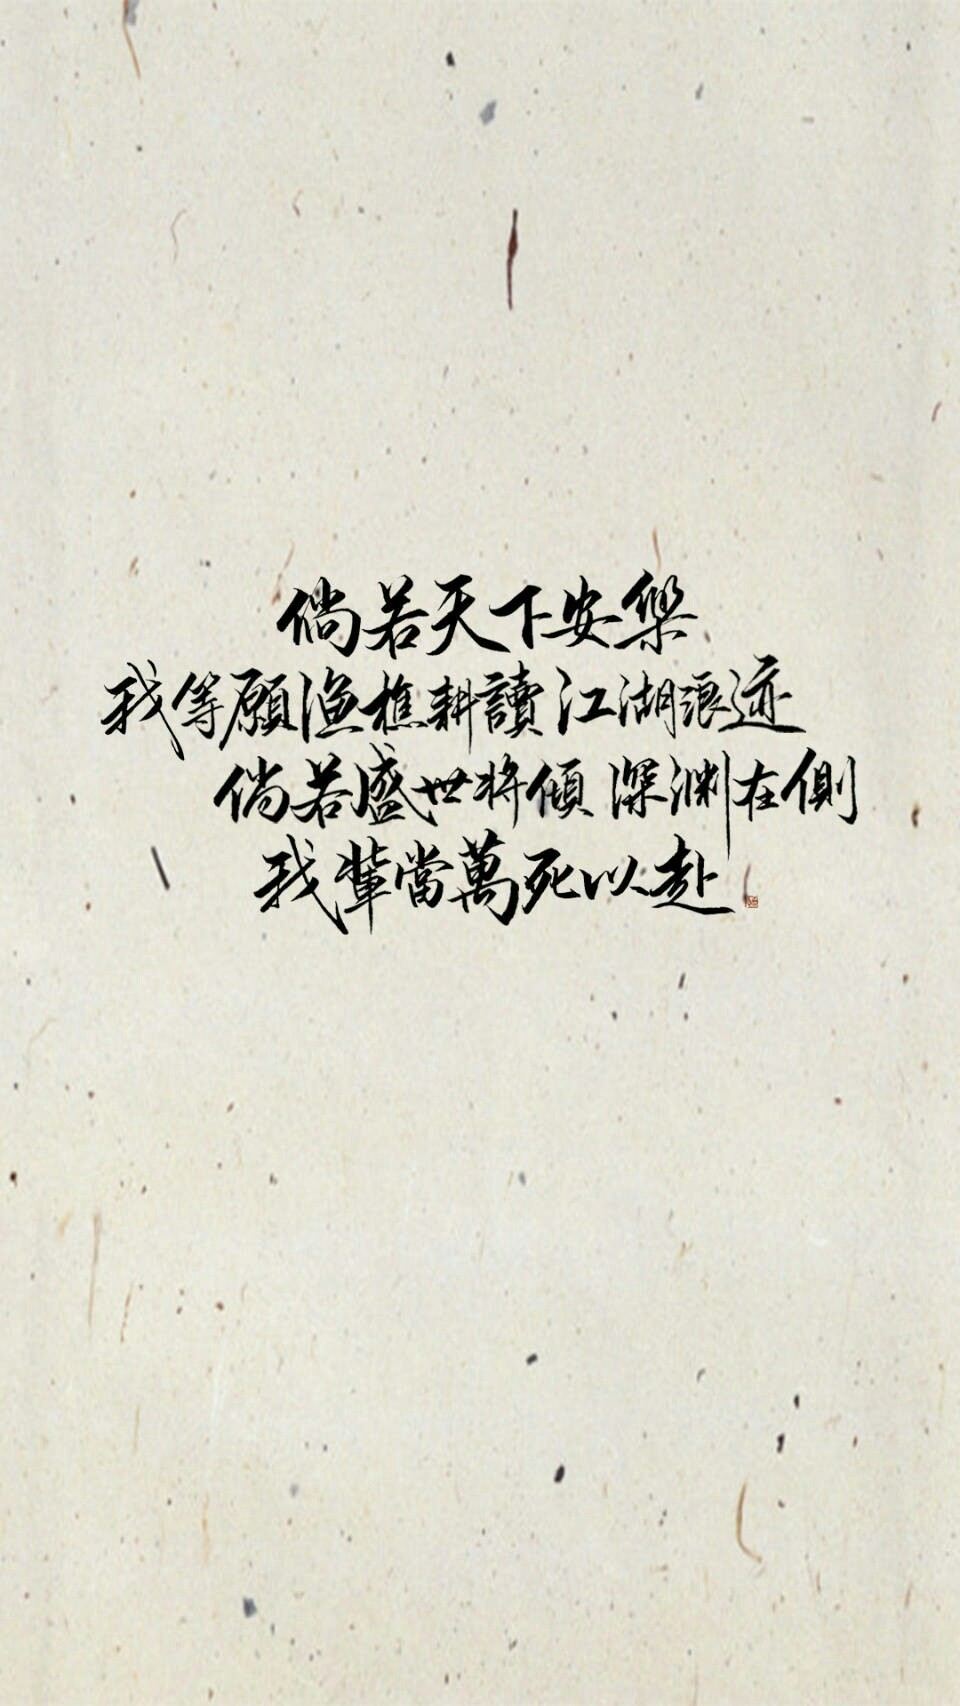 倘若天下安樂
我等願漁樵耕讀 江湖浪迹
倘若盛世將傾 深渊在側
我輩當萬死以赴